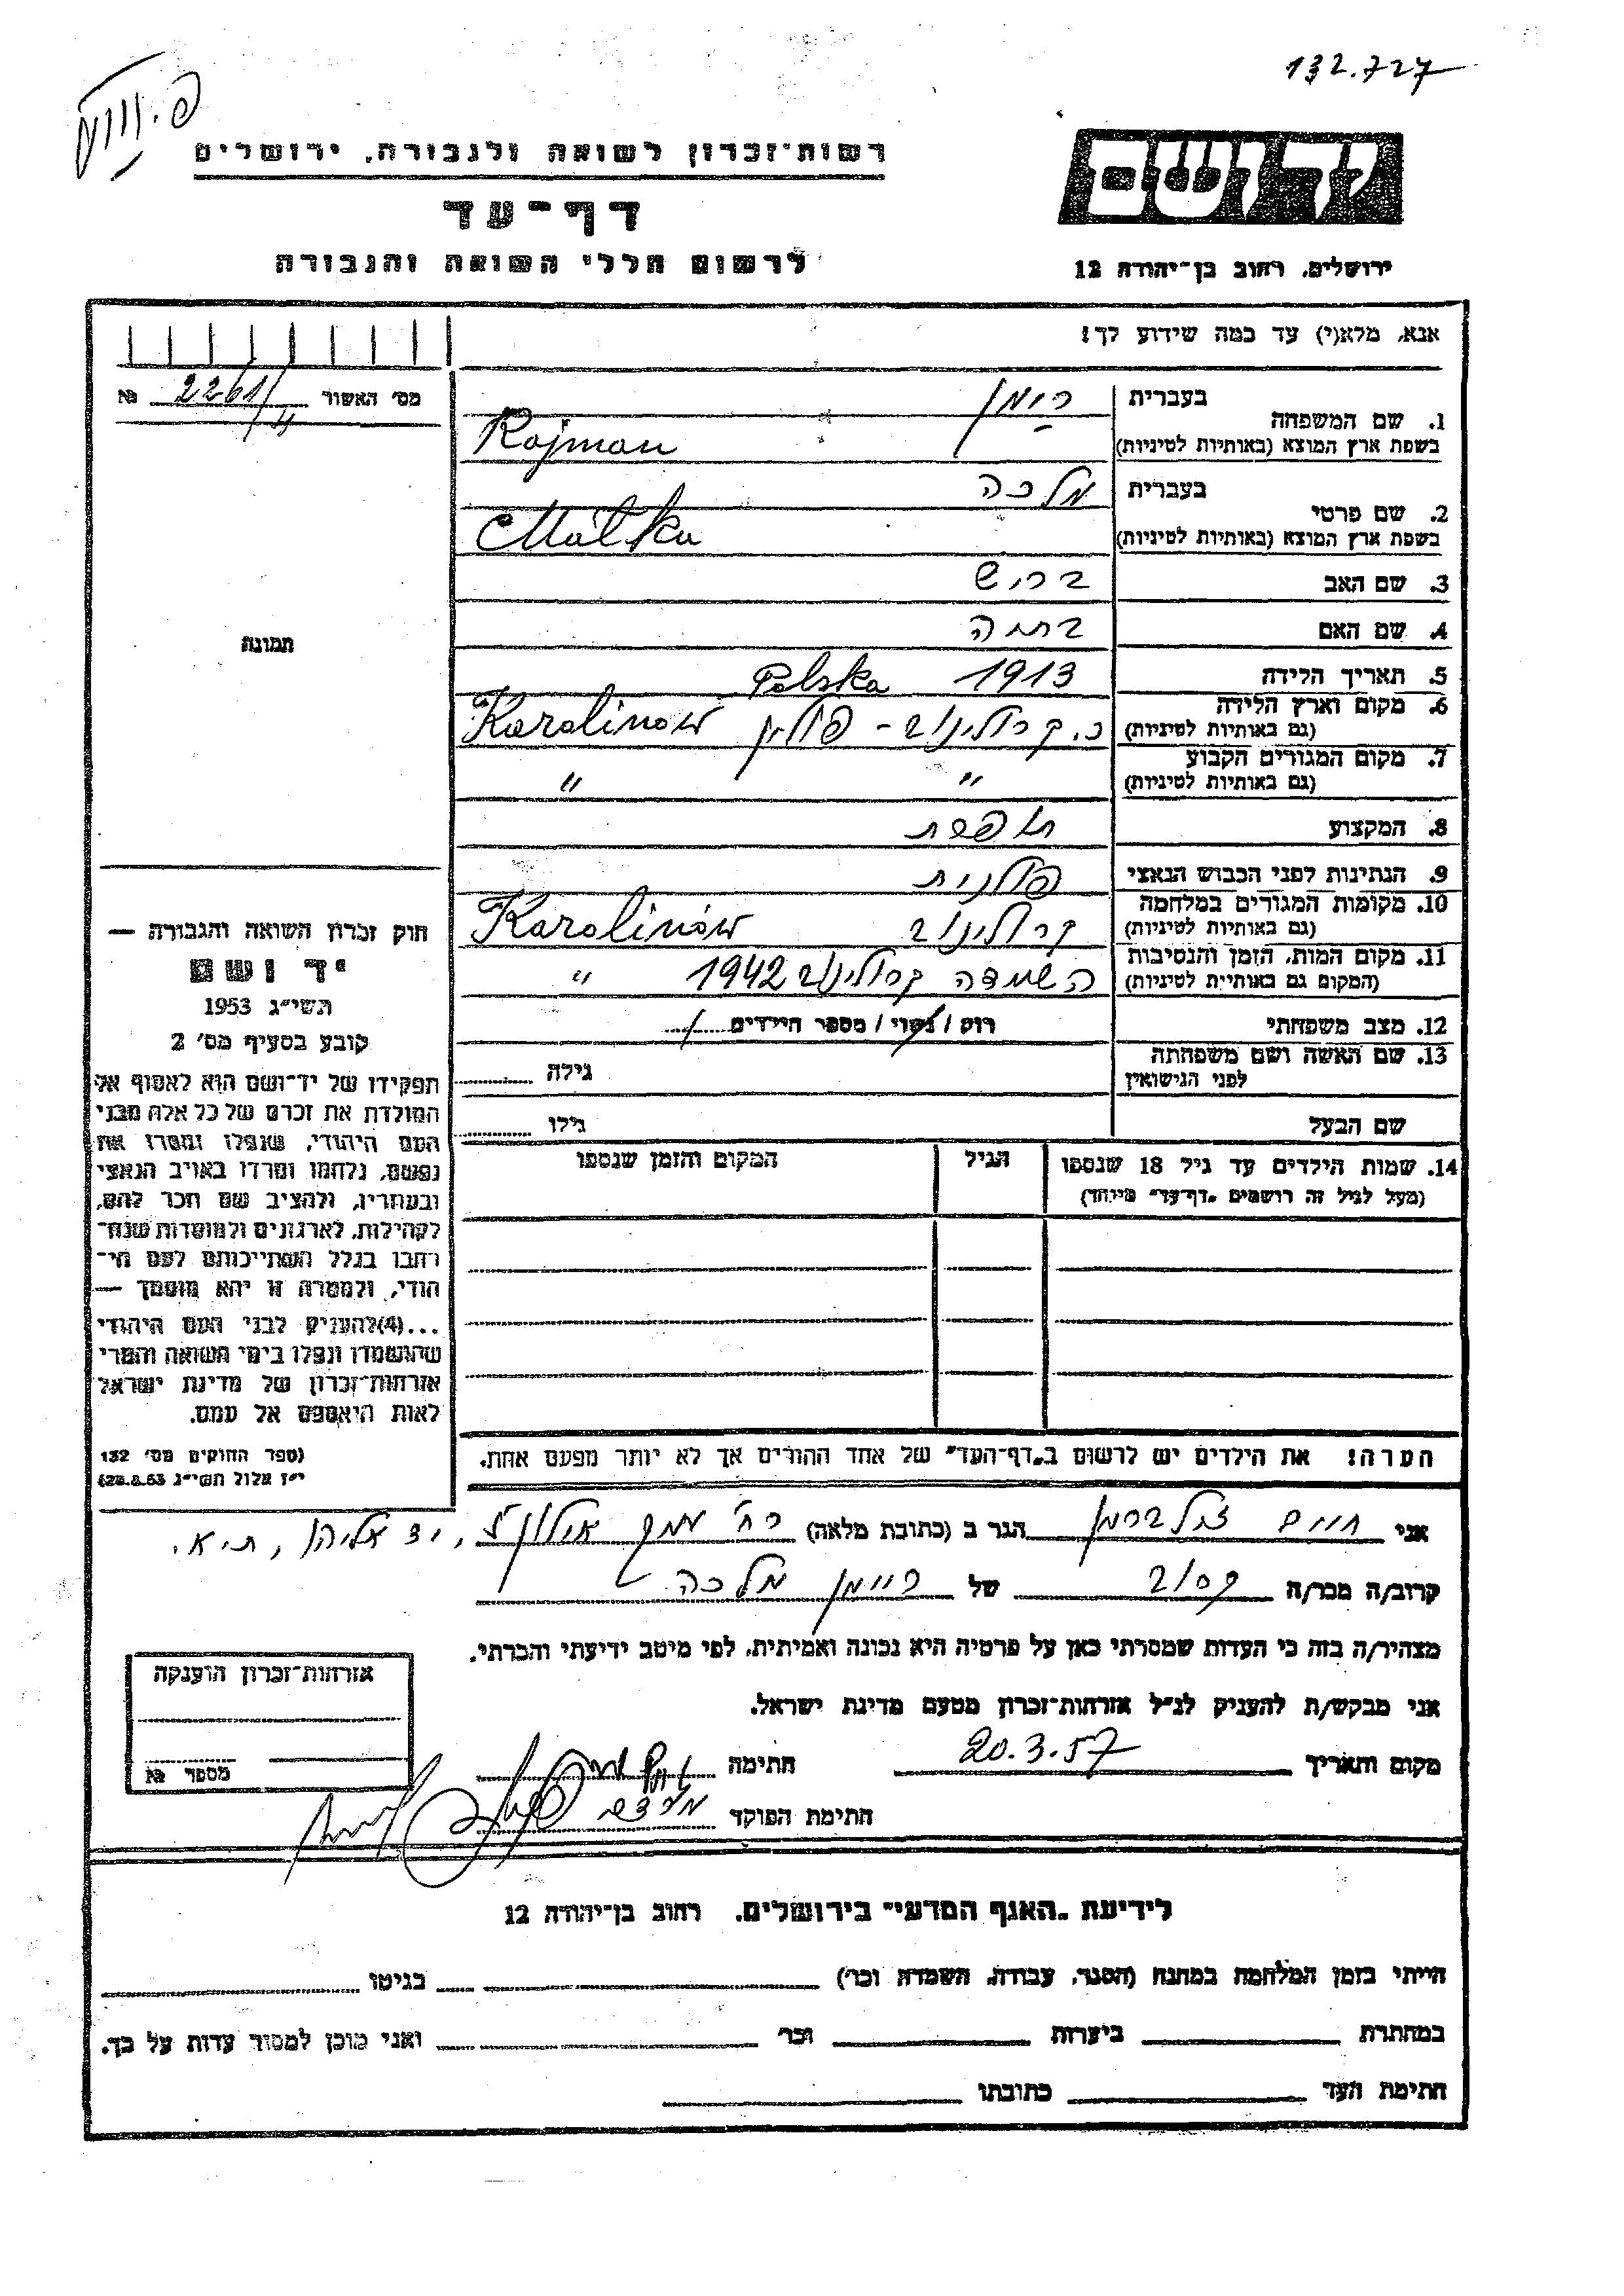 132.727
רשות־זכרון לשואה ולגבורה, ירושלים
יד ושם
דף־עד
לרשום חללי השואה והגבורה
ירושלים, רחוב בן־יהודה 12
אנא, מלא(י) עד כמה שידוע לך!
מס׳ האשור 2261/ №
1. שם המשפחה
בעברית רימן
בשפת ארץ המוצא (באותיות לטיניות) Rajman
2. שם פרטי
בעברית מלכה
בשפת ארץ המוצא (באותיות לטיניות) Malka
3. שם האב בריש
4. שם האם
תמונה
5. תאריך הלידה 1913
6. מקום וארץ הלידה (גם באותיות לטיניות) כ. קרולינוב - פולין Karolinów Polska
7. מקום המגורים הקבוע (גם באותיות לטיניות) " "
8. המקצוע תופרת
9. הנתינות לפני הכבוש הנאצי פולנית
10. מקומות המגורים במלחמה (גם באותיות לטיניות) קרולינוב Karolinów
11. מקום המות, הזמן והנסיבות (המקום גם באותיות לטיניות) השמדה קרולינוב 1942 "
12. מצב משפחתי רוק / נשוי / מספר הילדים
13. שם האשה ושם משפחתה לפני הנישואין גילה
שם הבעל גילו
14. שמות הילדים עד גיל 18 שנספו
(מעל לגיל זה רושמים „דף־עד״ מיוחד)
הגיל
המקום והזמן שנספו
הערה! את הילדים יש לרשום ב„דף־העד״ של אחד ההורים אך לא יותר מפעם אחת.
חוק זכרון השואה והגבורה —
יד ושם
תשי״ג 1953
קובע בסעיף מס׳ 2
תפקידו של יד־ושם הוא לאסוף אל
המולדת את זכרם של כל אלה מבני
העם היהודי, שנפלו ומסרו את
נפשם, נלחמו ומרדו באויב הנאצי
ובעוזריו, ולהציב שם וזכר להם,
לקהילות, לארגונים ולמוסדות שנח־
רבו בגלל השתייכותם לעם הי־
הודי, ולמטרה זו יהא מוסמך —
...(4)להעניק לבני העם היהודי
שהושמדו ונפלו בימי השואה והמרי
אזרחות־זכרון של מדינת ישראל
לאות היאספם אל עמם.
(ספר החוקים מס׳ 132
י״ז אלול תשי״ג 28.8.53)
אני חיים זילברמן הגר ב (כתובת מלאה) רח׳ אילון, יד אליהו, ת.א.
קרוב/ה מכר/ה קרוב של ריימן מלכה
מצהיר/ה בזה כי העדות שמסרתי כאן על פרטיה היא נכונה ואמיתית, לפי מיטב ידיעתי והכרתי.
אני מבקש/ת להעניק לנ״ל אזרחות־זכרון מטעם מדינת ישראל.
מקום ותאריך 20.3.57 חתימה
חתימת הפוקד
אזרחות־זכרון הוענקה
מספר №
לידיעת „האגף המדעי״ בירושלים, רחוב בן־יהודה 12
הייתי בזמן המלחמה במחנה (הסגר, עבודה, השמדה וכר׳) בגיטו
במחתרת ביערות וכר׳ ואני מוכן למסור עדות על כך.
חתימת העד כתובתו